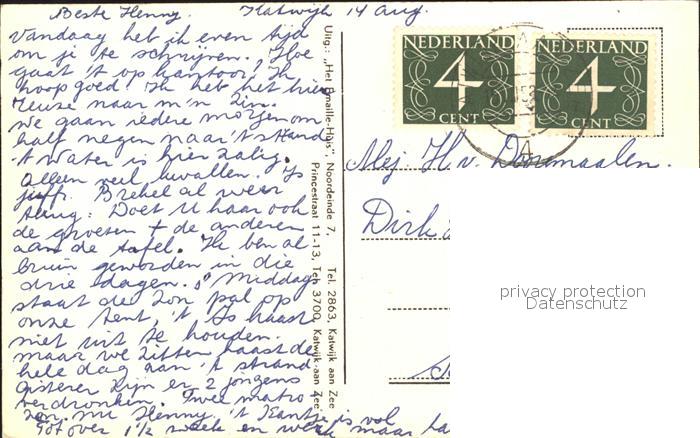 Beste Henny. Katwijk 14 Aug.
Vandaag heb ik even tijd
om je te schrijven. Hoe
gaat 't op kantoor, Ik
hoop goed! Ik heb het hier
reuze naar m'n zin.
We gaan iedere morgen om
half negen naar 't strand
't Water is hier zalig.
Alleen veel kwallen. Is
juffr. Brekel al weer
terug? Doet U haar ook
de groeten + de anderen
aan de tafel. Ik ben al
bruin geworden in die
drie dagen. 's Middags
staat de zon pal op
onze tent, 't is haast
niet uit te houden.
maar we zitten haast de
hele dag aan 't strand
gisteren zijn er 2 jongens
verdronken. Twee matro-
zen. Henny. 't Kantje is vol
Tot over 1½ week en maar
Uitg.: „Het Emaille-Huis", Noordeinde 7, Tel. 2863, Katwijk aan Zee
Princestraat 11-13, Tel. 3700, Katwijk-aan Zee
NEDERLAND
4
CENT
NEDERLAND
4
CENT
Mej. H. v. Dommaalen.
Dirk
privacy protection
Datenschutz